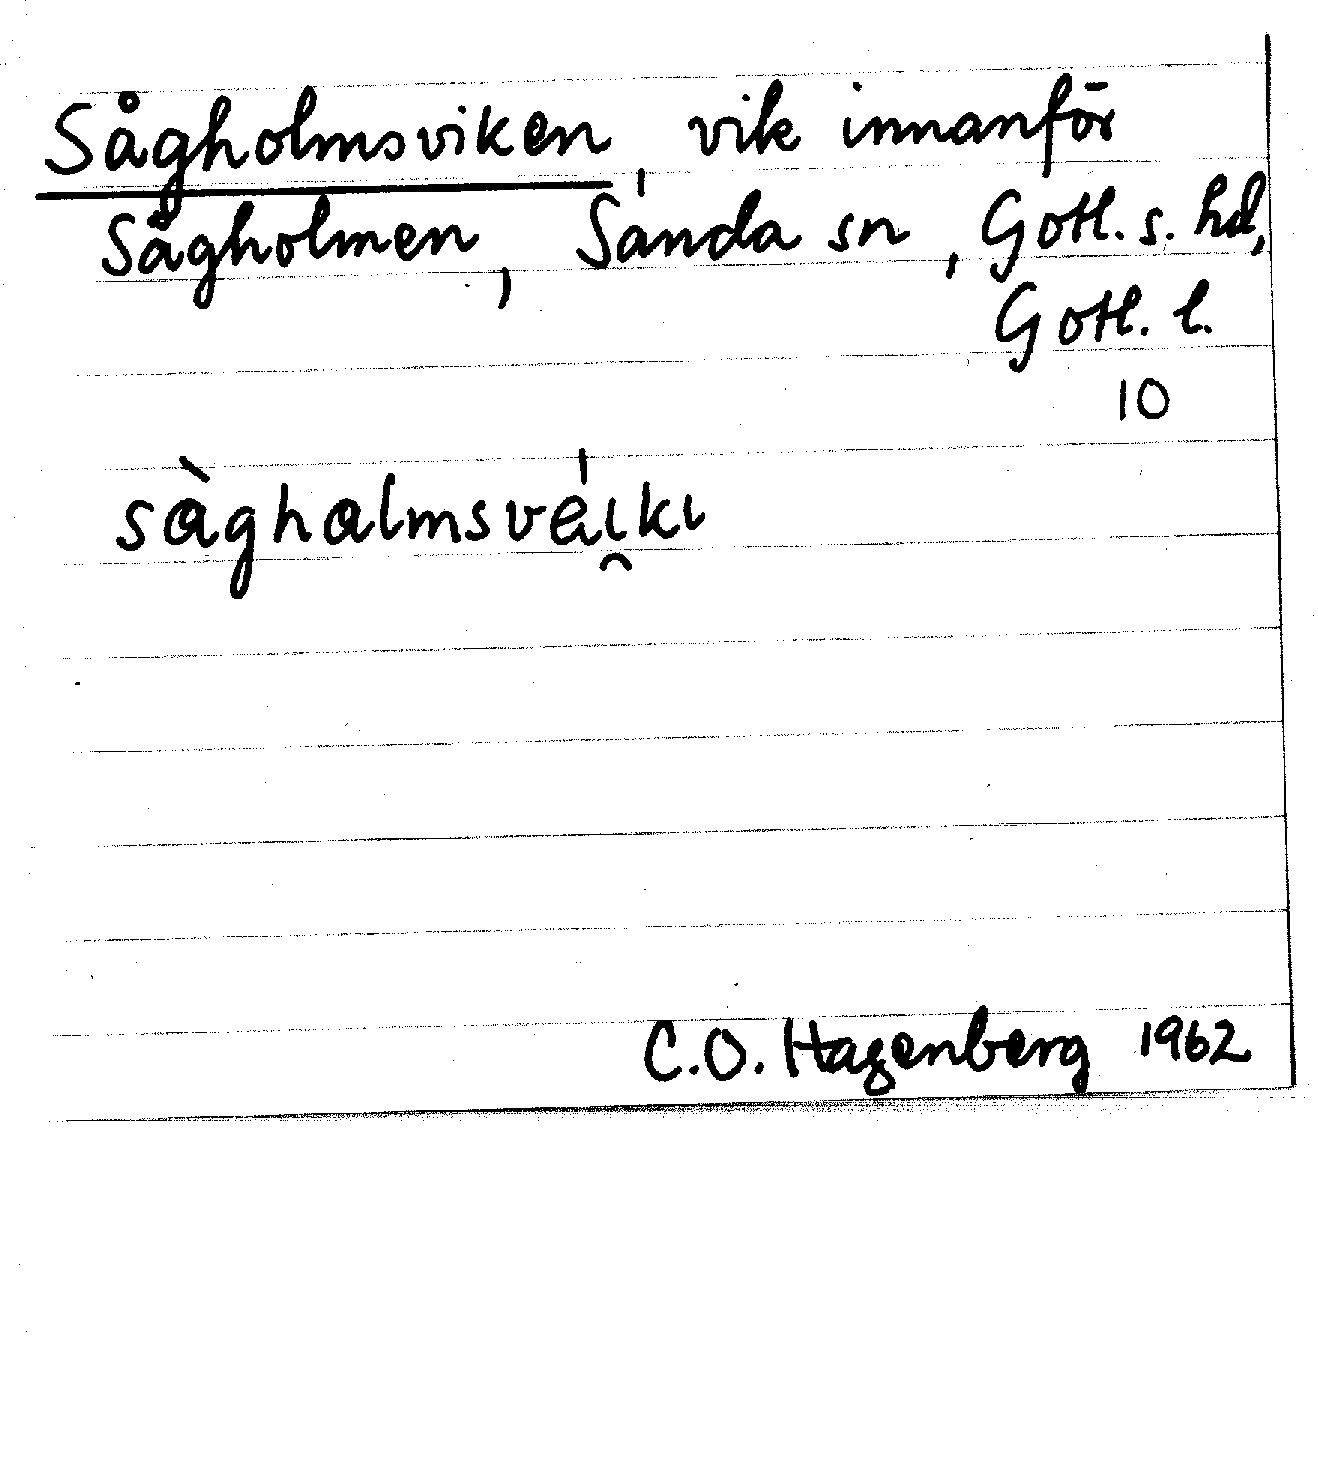 Sågholmsviken, vik innanför
Sågholmen, Sanda sn, Gotl. s. hd,
Gotl. l.
10
sàghalmsváiki
C.O. Hagenberg 1962